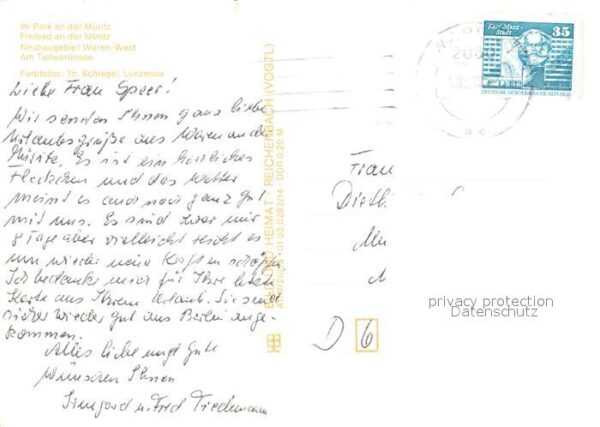 Im Park an der Müritz
Freibad an der Müritz
Neubaugebiet Waren-West
Am Tiefwarensee
Farbfotos: Th. Schlegel, Lunzenau
Liebe Frau Speer!
Wir senden Ihnen ganz liebe
Urlaubsgrüße aus Waren an der
Müritz. Es ist ein herrliches
Fleckchen und das Wetter
meint es auch noch ganz gut
mit uns. Es sind zwar nur
8 Tage aber vielleicht reicht es
um wieder neue Kraft zu schöpfen
Ich bedanke mich für Ihre letzte
Karte aus Ihrem Urlaub. Sie sind
sicher wieder gut aus Berlin ange-
kommen.
Alles liebe und Gute
wünschen Ihnen
Irmgard u. Fred Tiedemann
BILD UND HEIMAT REICHENBACH (VOGTL)
01 03 0282/14 DDR 0,20 M
Karl-Marx-
Stadt
35
DEUTSCHE DEMOKRATISCHE REPUBLIK
Frau
D 6
privacy protection
Datenschutz